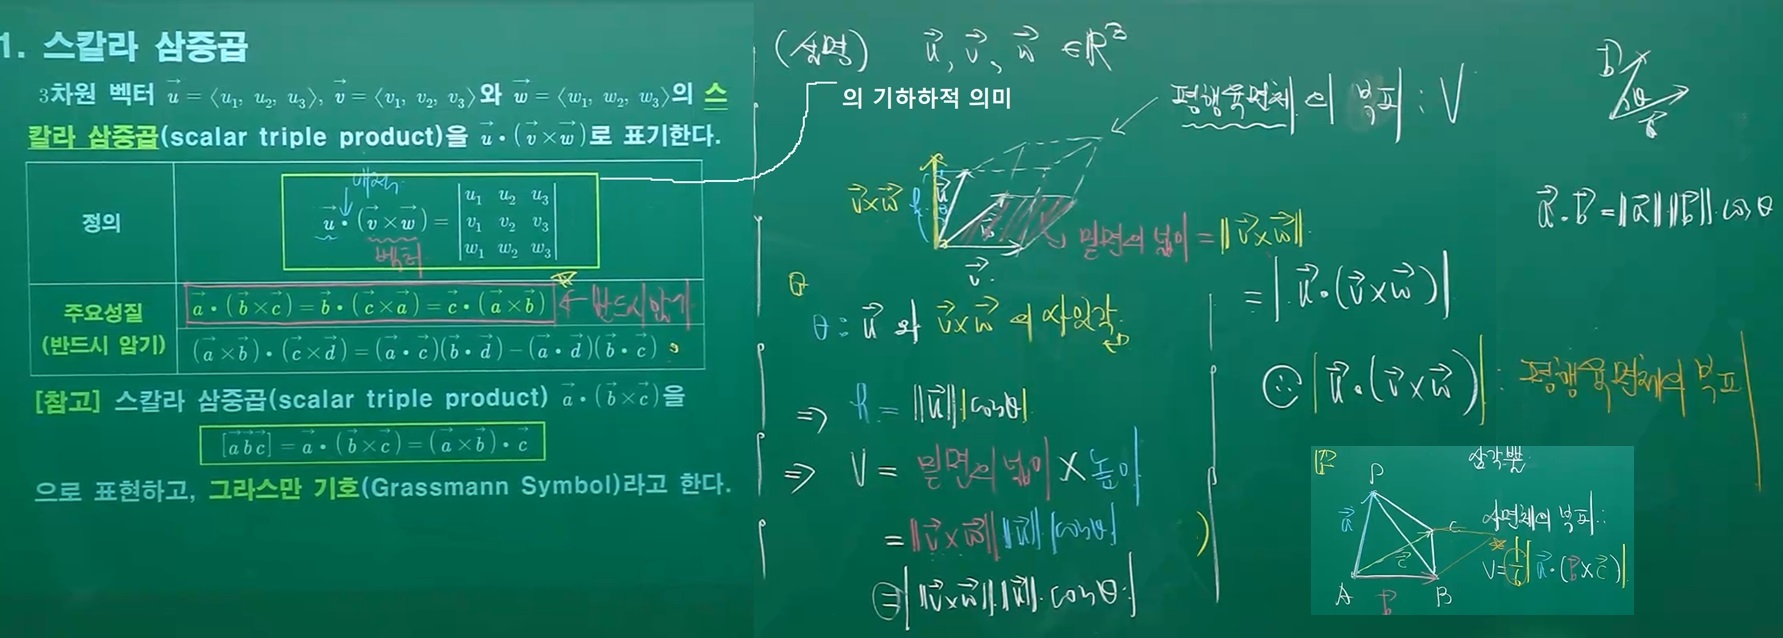 1. 스칼라 삼중곱
3차원 벡터 u⃗ = ⟨u₁, u₂, u₃⟩, v⃗ = ⟨v₁, v₂, v₃⟩와 w⃗ = ⟨w₁, w₂, w₃⟩의 스
칼라 삼중곱(scalar triple product)을 u⃗ • (v⃗ × w⃗)로 표기한다.
정의
내적
u⃗ • (v⃗ × w⃗) = | u₁ u₂ u₃ |
| v₁ v₂ v₃ |
| w₁ w₂ w₃ |
벡터
주요성질
(반드시 암기)
a⃗ • (b⃗ × c⃗) = b⃗ • (c⃗ × a⃗) = c⃗ • (a⃗ × b⃗) ← 반드시 암기
(a⃗ × b⃗) • (c⃗ × d⃗) = (a⃗ • c⃗)(b⃗ • d⃗) − (a⃗ • d⃗)(b⃗ • c⃗)
[참고] 스칼라 삼중곱(scalar triple product) a⃗ • (b⃗ × c⃗)을
[a⃗b⃗c⃗] = a⃗ • (b⃗ × c⃗) = (a⃗ × b⃗) • c⃗
으로 표현하고, 그라스만 기호(Grassmann Symbol)라고 한다.
(설명) u⃗, v⃗, w⃗ ∈ ℝ³
의 기하하적 의미
평행육면체의 부피 : V
v⃗×w⃗ h u⃗ θ w⃗
v⃗
밑면의 넓이 = ‖v⃗×w⃗‖
θ : u⃗ 와 v⃗×w⃗ 의 사잇각
⇒ h = ‖u⃗‖|cosθ|
⇒ V = 밑면의 넓이 × 높이
= ‖v⃗×w⃗‖‖u⃗‖|cosθ|
= |‖v⃗×w⃗‖·‖u⃗‖·cosθ|
b⃗
θ
a⃗
a⃗·b⃗ = ‖a⃗‖‖b⃗‖·cosθ
= |u⃗·(v⃗×w⃗)|
∴ |u⃗·(v⃗×w⃗)| : 평행육면체의 부피
삼각뿔
P
a⃗
C
c⃗
A b⃗ B
사면체의 부피 :
V = 1/6 |a⃗·(b⃗×c⃗)|